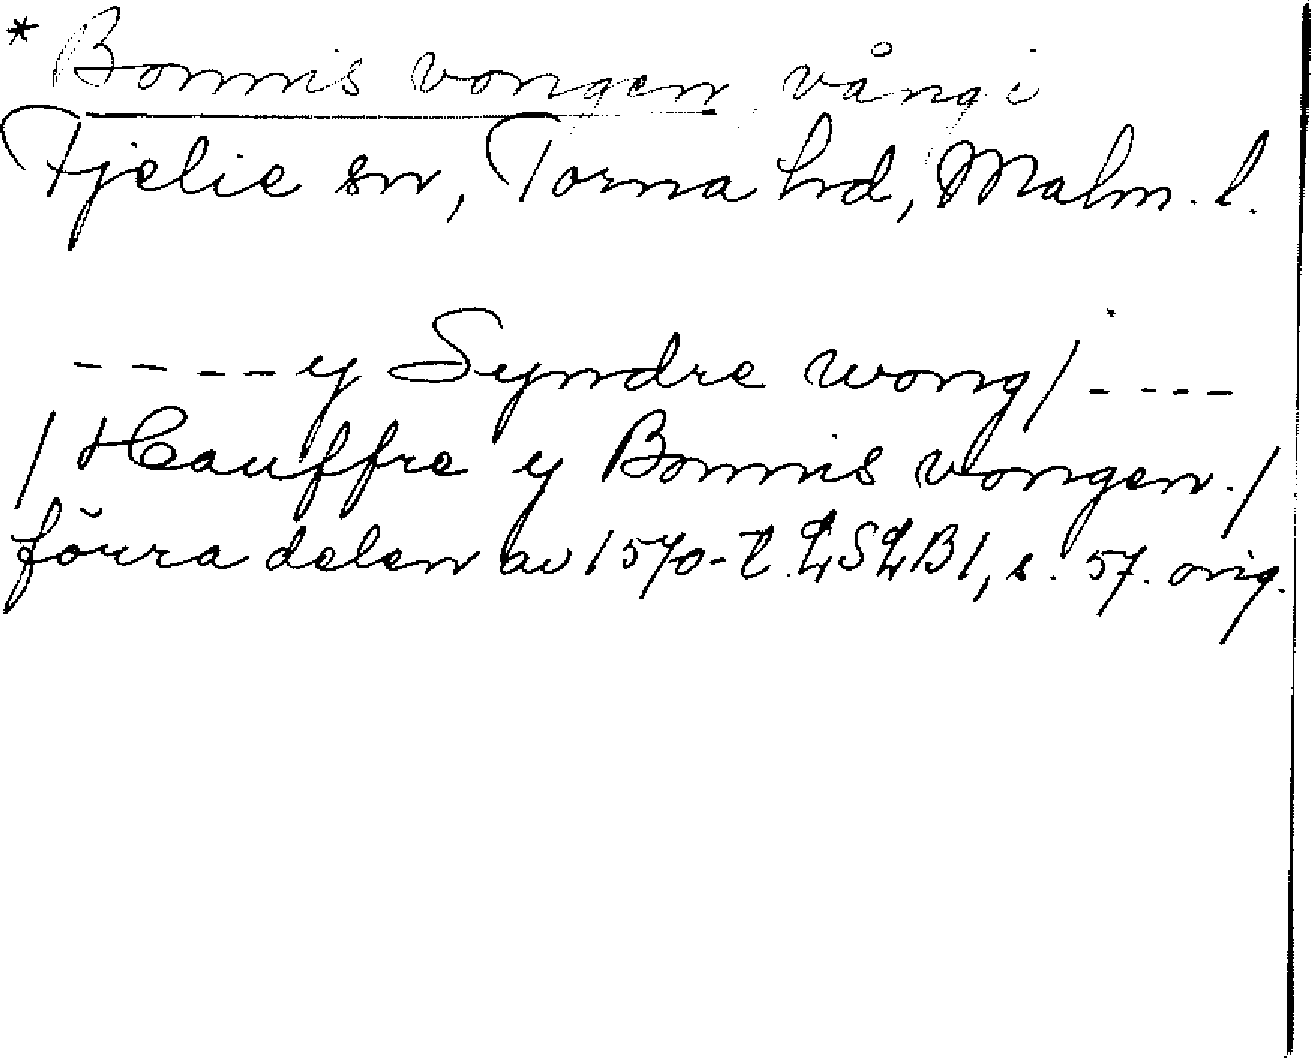 * Bonnis vongen vång i
Fjelie sn, Torna hd, Malm. l.
----y Syndre wong/----
/Hauffre y Bonnis vongen./
förra delen av 1570-t. LSLB1, s. 57. orig.